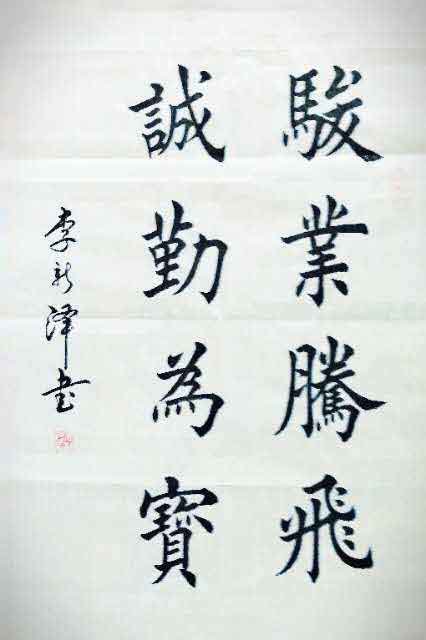 駿業騰飛
誠勤為寶
李新澤书